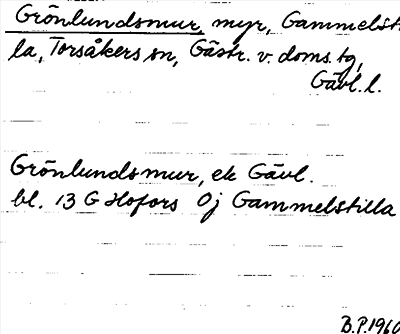 Grönlundsmur, myr, Gammelst
la, Torsåkers sn, Gästr. v. doms. tg,
Gävl. l.
Grönlundsmur, ek Gävl.
bl. 13 G Hofors 0j Gammelstilla
B.P. 1960